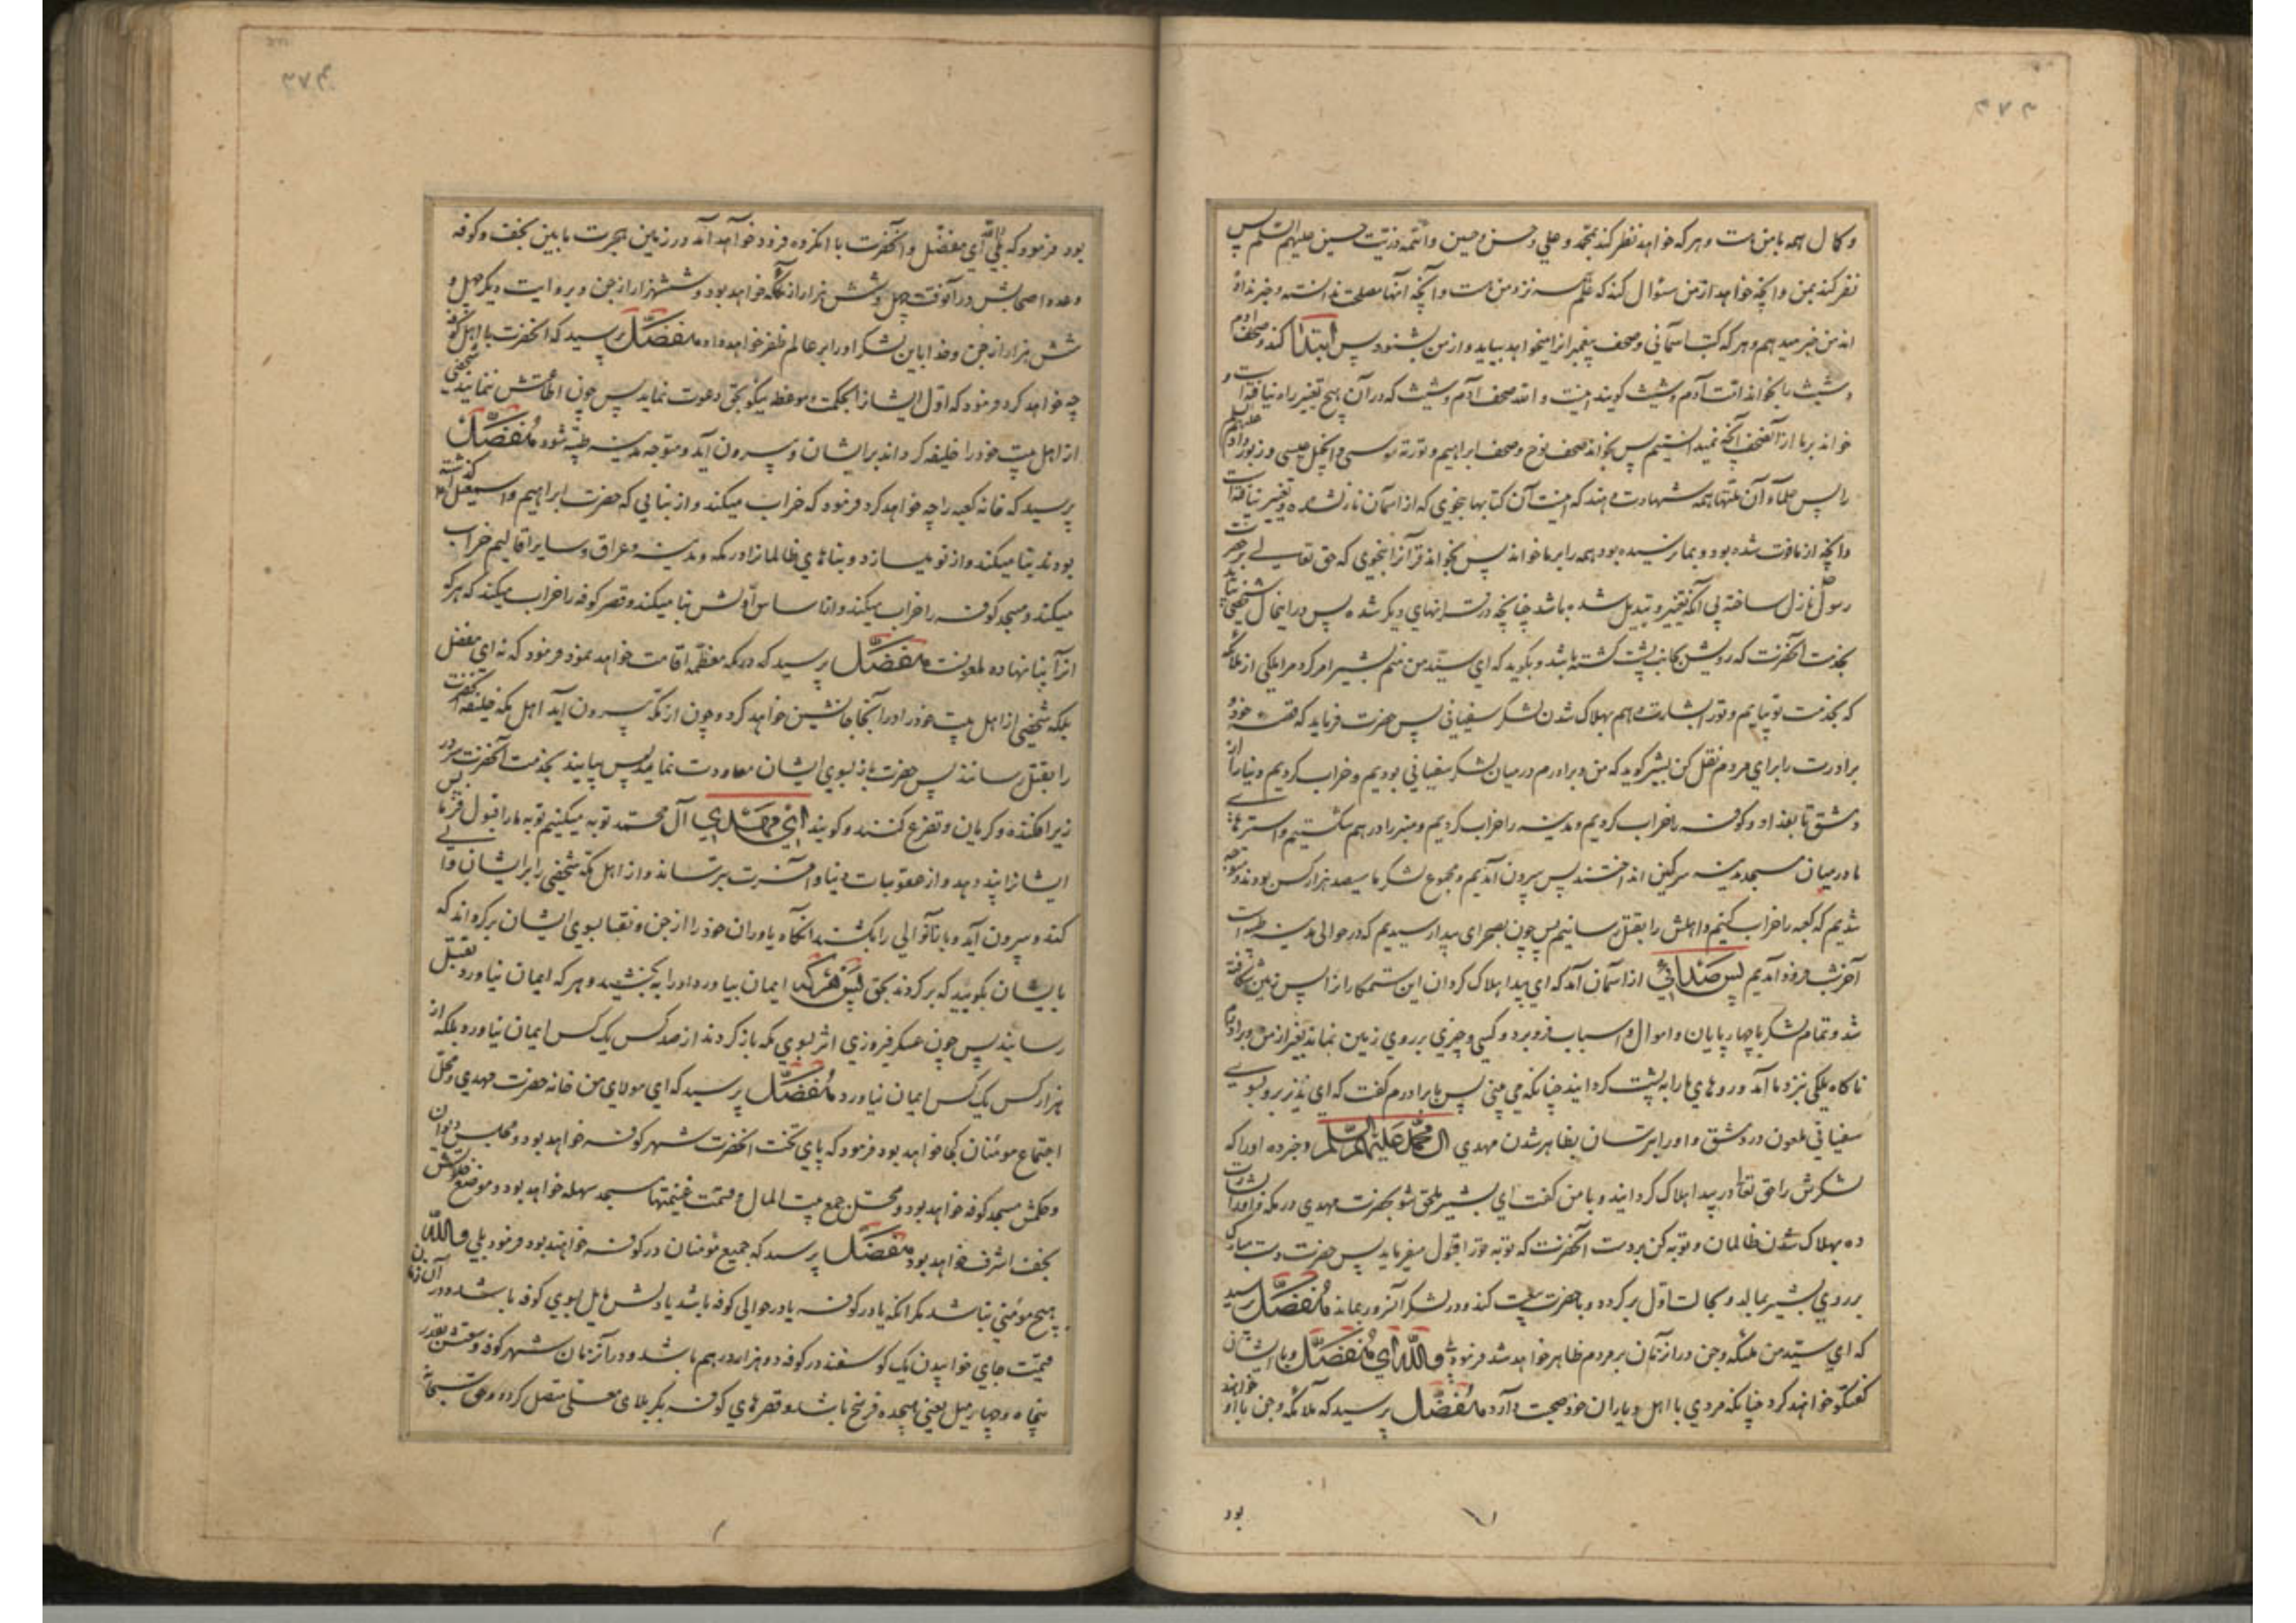 ۲۷۲
و کمال همه با من است و هر که خواهد نظر کند بمحمد و علی و حسن و حسین و ائمه ذریت حسین علیهم السلم پس
نظر کند بمن و آنچه خواهد از من سؤال کند که علم همه نزد من است و آنچه آنها مصلحت ندانسته و خبر نداده
اند من خبر میدهم و هر که کتب آسمانی و صحف پیغمبرانرا میخواهد بیاید و از من بشنود پس ابتدا کند و صحف آدم
و شیث را بخواند امت آدم و شیث گویند اینست والله صحف آدم و شیث که در آن هیچ تغییر راه نیافته است و
خواند بر ما از آنصحف آنچه نمیدانستیم پس بخواند صحف نوح و صحف ابراهیم و توریة موسی و انجیل عیسی و زبور داود علیهم السلم
را پس علماء آن ملتها همه شهادت دهند که اینست آن کتابها بنحوی که از آسمان نازل شده و تغییر نیافته است
و آنچه از ما فوت شده بود و بما نرسیده بود همه را بر ما خواند پس بخواند قرآنرا بنحوی که حق تعالی بر حضرت
رسول ص نازل ساخته بی آنکه تغییر و تبدیل شده باشد چنانچه در قرآنهای دیگر شده پس در اینحال شخصی بیاید
بخدمت آنحضرت که رویش بجانب پشت گشته باشد و بگوید که ای سید من منم بشیر امر کرد مرا ملکی از ملائکه
که بخدمت تو بیایم و تورا بشارت دهم بهلاک شدن لشکر سفیانی پس حضرت فرماید که قصه خود و
برادرت را برای مردم نقل کن بشیر گوید که من و برادرم در میان لشکر سفیانی بودیم و خراب کردیم دنیا را از
دمشق تا بغداد و کوفه را خراب کردیم و مدینه را خراب کردیم و منبر را در هم شکستیم و استرهای
ما در میان مسجد مدینه سرکین انداختند پس بیرون آمدیم و مجموع لشکر ما سیصد هزار کس بودند و متوجه
شدیم که کعبه را خراب کنیم و اهلش را بقتل رسانیم پس چون بصحرای بیدا رسیدیم که در حوالی مدینه طیبه است
آخر شب فرود آمدیم پس صدائی از آسمان آمد که ای بیدا هلاک گردان این ستمکارانرا پس زمین شکافته
شد و تمام لشکر با چهارپایان و اموال و اسباب فرو برد و کسی و چیزی بر روی زمین نماند بغیر از من و برادرم
ناگاه ملکی نزد ما آمد و روهای ما را به پشت گردانید چنانکه می بینی پس با برادرم گفت که ای نذیر برو بسوی
سفیانی ملعون در دمشق و اورا بترسان بظاهر شدن مهدی آل محمد علیهم السلم و خبر ده اورا که
لشکرش را حق تعالی در بیدا هلاک گردانید و با من گفت ای بشیر ملحق شو بحضرت مهدی در مکه و اورا بشارت
ده بهلاک شدن ظالمان و توبه کن بر دست آنحضرت که توبه تورا قبول میفرماید پس حضرت دست مبارک
بر روی بشیر بمالد و بحالت اول برگردد و با حضرت بیعت کند و در لشکر آنسرور بماند مفضل پرسید
که ای سید من ملئکه و جن در آنزمان بر مردم ظاهر خواهند شد فرمود بلی والله ای مفضل و با ایشان
گفتگو خواهند کرد چنانکه مردی با اهل و یاران خود صحبت دارد مفضل پرسید که ملائکه و جن با او خواهند
بود
بود فرمود که بلی والله ای مفضل و آنحضرت با آنگروه فرود خواهد آمد در زمین هجرت مابین نجف و کوفه
و عدد اصحابش در آنوقت چهل و شش هزار از ملئکه خواهد بود و ششهزار از جن و بروایت دیگر چهل و
شش هزار از جن و خدا باین لشکر اورا بر عالم ظفر خواهد داد مفضل پرسید که آنحضرت با اهل مکه
چه خواهد کرد فرمود که اول ایشانرا بحکمت و موعظه نیکو بحق دعوت نماید پس چون اطاعتش نمایند شخصی
از اهل بیت خود را خلیفه گرداند بر ایشان و بیرون آید و متوجه مدینه طیبه شود مفضل
پرسید که خانه کعبه را چه خواهد کرد فرمود که خراب میکند و از بنایی که حضرت ابراهیم و اسمعیل گذاشته
بودند بنا میکند و از نو میسازد و بناهای ظالمانرا در مکه و مدینه و عراق و سایر اقالیم خراب
میکند و مسجد کوفه را خراب میکند و از اساس اولش بنا میکند و قصر کوفه را خراب میکند که هر که
آنرا بنا نهاده ملعونست مفضل پرسید که در مکه معظمه اقامت خواهد نمود فرمود که نه ای مفضل
بلکه شخصی از اهل بیت خود را در آنجا جانشین خواهد کرد و چون از مکه بیرون آید اهل مکه خلیفه آنحضرت
را بقتل رسانند پس حضرت باز بسوی ایشان معاودت نماید پس بیایند بخدمت آنحضرت سر در
زیر افکنده و گریان و تضرع کنند و گویند ای مهدی آل محمد توبه میکنیم توبه ما را قبول فرما پس
ایشانرا پند دهد و از عقوبات دنیا و آخرت بترساند و از اهل مکه شخصی را بر ایشان والی
کند و بیرون آید و باز آنوالی را بکشند آنگاه یاوران خود را از جن و نقبا بسوی ایشان برگرداند که
با ایشان بگویید که برگردند بحق پس هر که ایمان بیاورد اورا ببخشید و هر که ایمان نیاورد بقتل
رسانید پس چون عسکر فیروزی اثر بسوی مکه بازگردند از صد کس یک کس ایمان نیاورد بلکه از
هزار کس یک کس ایمان نیاورد مفضل پرسید که ای مولای من خانه حضرت مهدی و محل
اجتماع مومنان کجا خواهد بود فرمود که پای تخت آنحضرت شهر کوفه خواهد بود و مجلس دیوان
و حکمش مسجد کوفه خواهد بود و محل جمع بیت المال و قسمت غنیمتها مسجد سهله خواهد بود و موضع خلوتش
نجف اشرف خواهد بود مفضل پرسید که جمیع مؤمنان در کوفه خواهند بود فرمود بلی والله
هیچ مومنی نباشد مگر آنکه یا در کوفه یا در حوالی کوفه باشد یا دلش مایل بسوی کوفه باشد و در آن زمان
قیمت جای خوابیدن یک گوسفند در کوفه دو هزار درهم باشد و در آنزمان شهر کوفه وسعتش بقدر
پنجاه و چهار میل یعنی هیجده فرسخ باشد و قصرهای کوفه بکربلای معلی متصل گردد و حق سبحانه